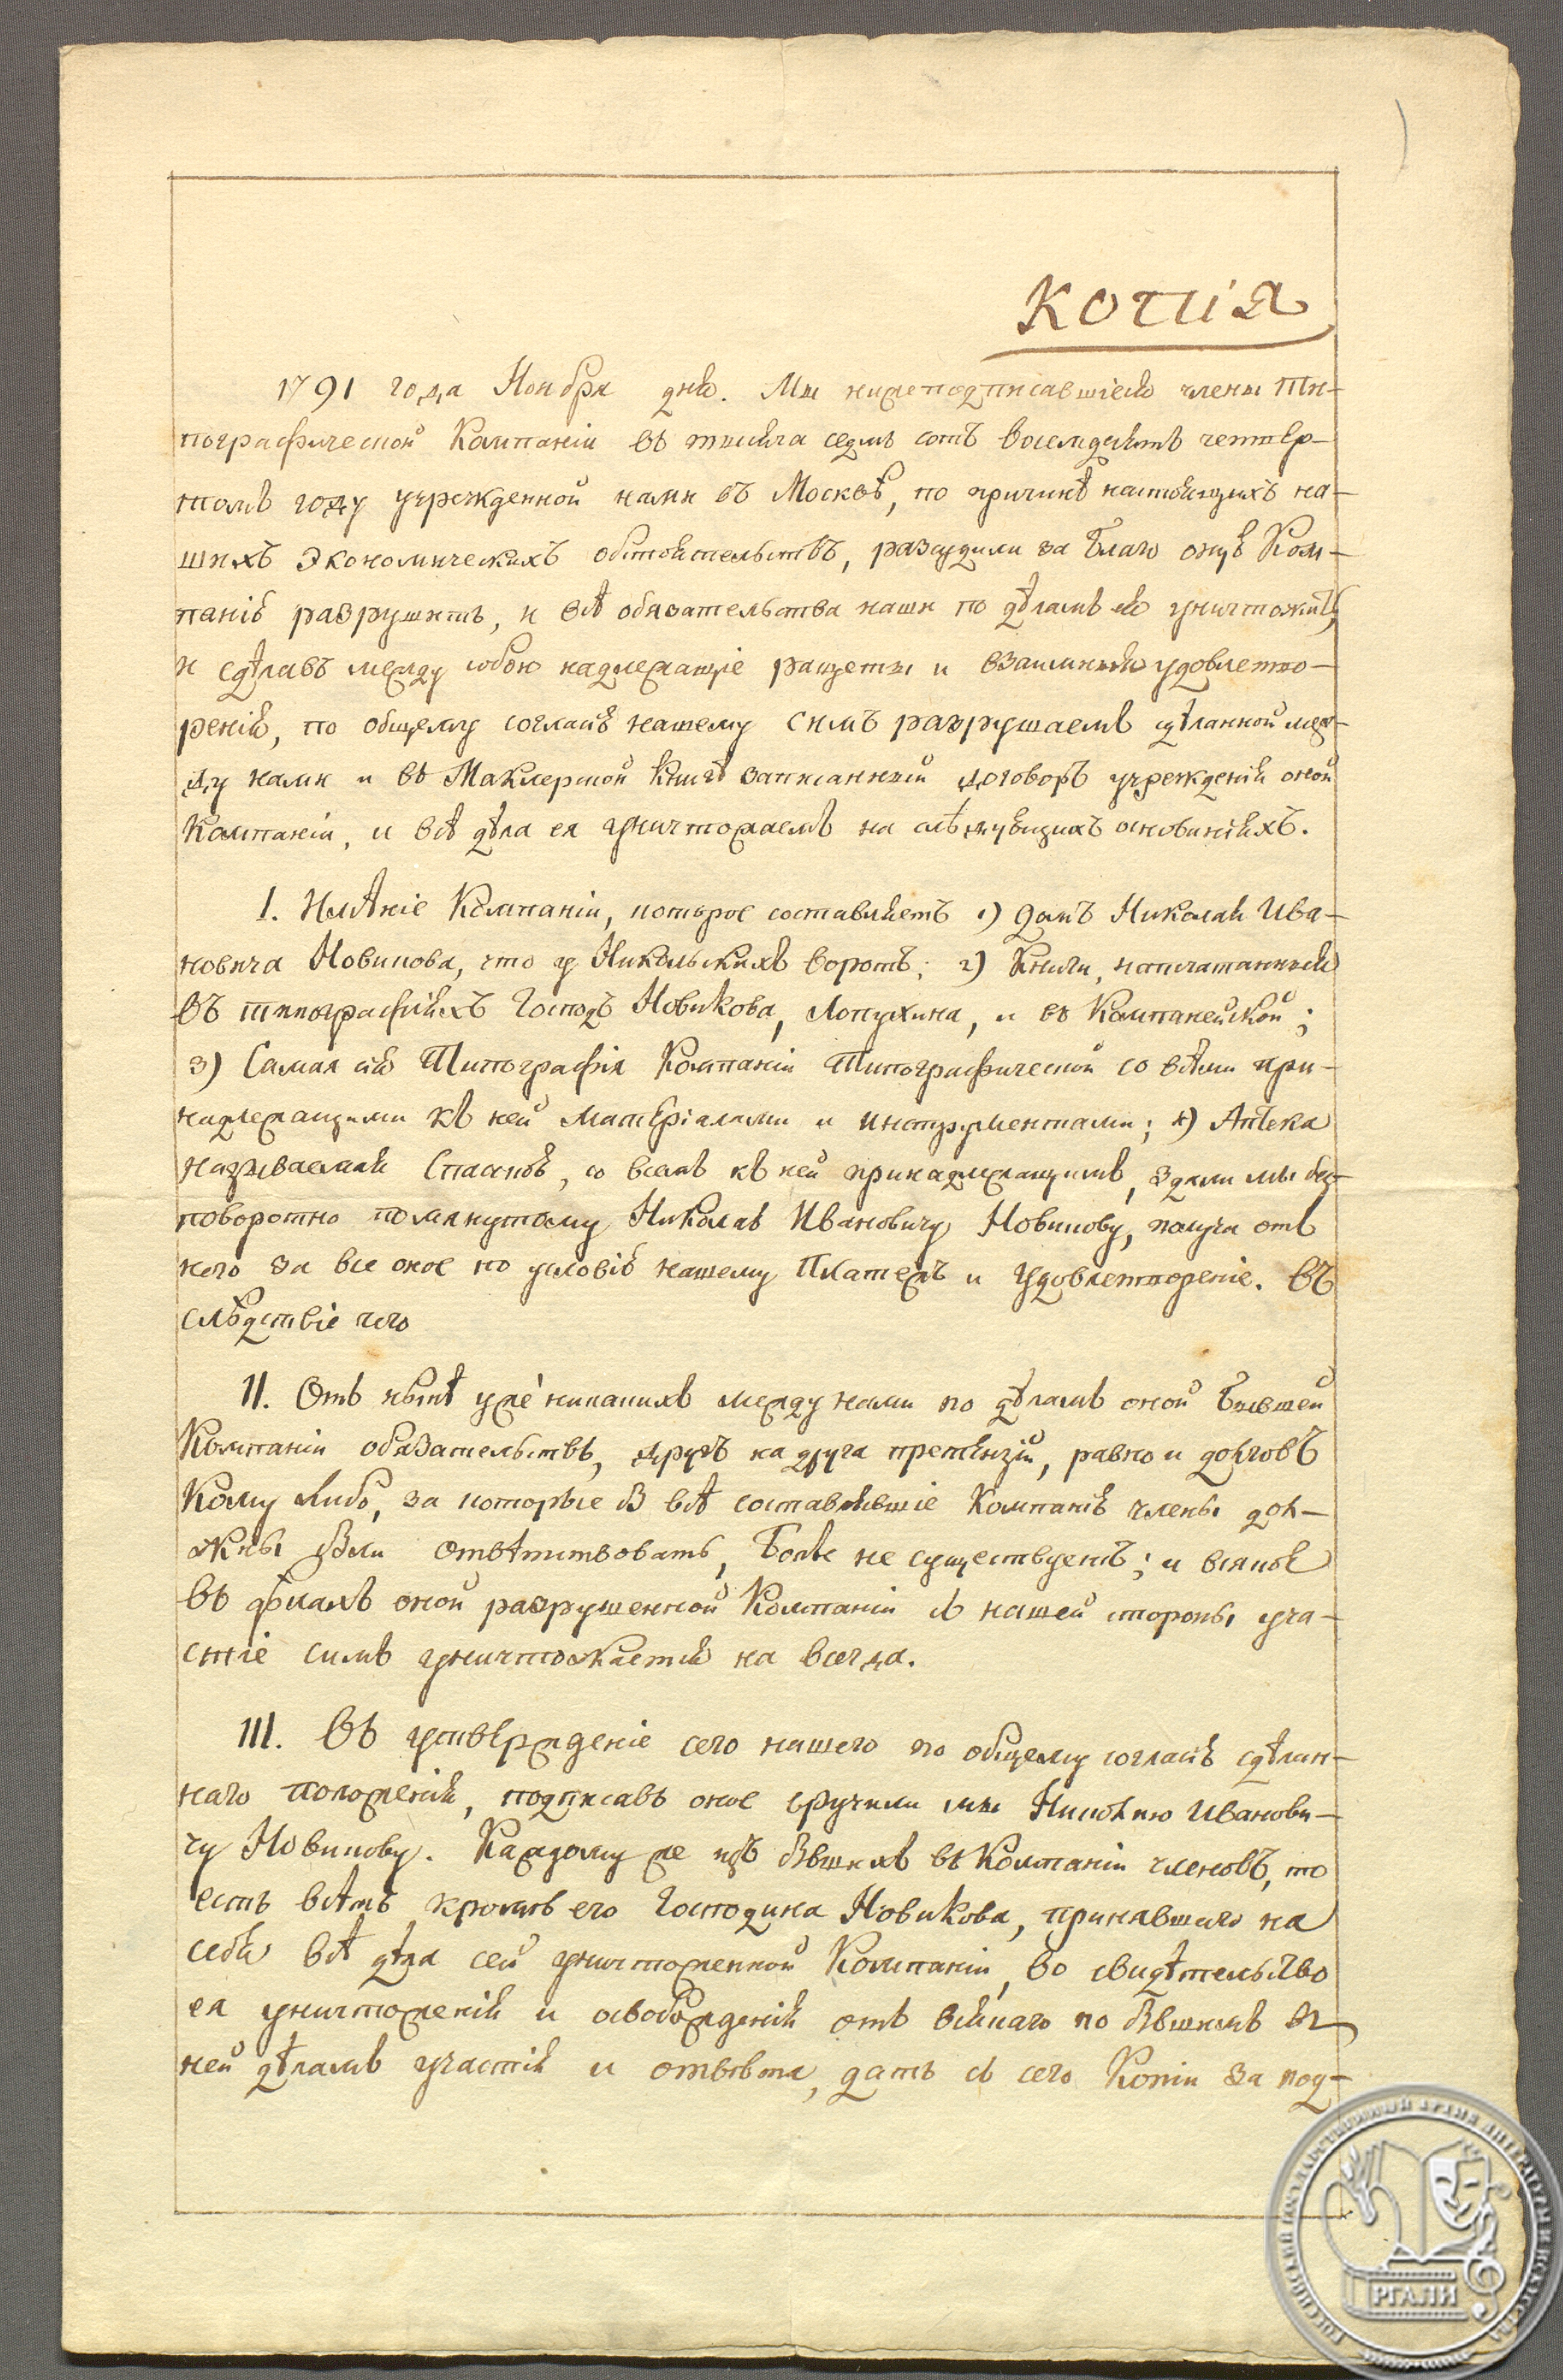 Копія
1791 года Ноября дня. Мы нижеподписавшіеся члены Ти-
пографической Компаніи въ тысяча седмь сотъ восемдесятъ четвер-
томъ году учрежденной нами въ Москвѣ, по причинѣ настоящихъ на-
шихъ Экономическихъ обстоятельствъ, разсудили за благо оную Ком-
панію разрушить, и всѣ обязательства наши по дѣламъ ея уничтожить,
и сдѣлавъ между собою надлежащіе ращеты и взаимныя удовлетво-
ренія, по общему согласію нашему симъ разрушаемъ сдѣланной меж-
ду нами и въ Маклерской книгѣ записанный договоръ учрежденія оной
Компаніи, и всѣ дѣла ея уничтожаемъ на слѣдующихъ основаніяхъ.
I. Имѣніе Компаніи, которое составляетъ 1) Домъ Николая Ива-
новича Новикова, что у Никольскихъ воротъ; 2) Книги, напечатанныя
въ типографіяхъ Господъ Новикова, Лопухина, и въ Компанейской;
3) Самая сія Типографія Компаніи Типографической со всѣми при-
надлежащими къ ней матеріалами и инструментами; 4) Аптека
называемая Спаская, со всемъ къ ней принадлежащимъ, здали мы без-
поворотно помянутому Николаю Ивановичу Новикову, получа отъ
него за все оное по условію нашему Платежъ и удовлетвореніе. Въ
слѣдствіе чего
II. Отъ нынѣ уже никакихъ между нами по дѣламъ оной бывшей
Компаніи обязательствъ, другъ на друга претензій, равно и долговъ
кому либо, за которые б всѣ составлявшіе Компанію члены дол-
жны были отвѣтствовать, болѣе не существуетъ; и всякое
въ дѣлахъ оной разрушенной Компаніи съ нашей стороны уча-
стіе симъ уничтожается на всегда.
III. Въ утвержденіе сего нашего по общему согласію сдѣлан-
наго положенія, подписавъ оное вручили мы Николаю Иванови-
чу Новикову. Каждому же изъ бывшихъ въ Компаніи членовъ, то
есть всѣмъ кромѣ его Господина Новикова, принявшаго на
себя всѣ дѣла сей уничтоженной Компаніи, во свидѣтельство
ея уничтоженія и освобожденія отъ всякаго по бывшимъ въ
ней дѣламъ участія и отвѣта, дать съ сего Копіи за под-
РОССИЙСКИЙ ГОСУДАРСТВЕННЫЙ АРХИВ ЛИТЕРАТУРЫ И ИСКУССТВА
РГАЛИ